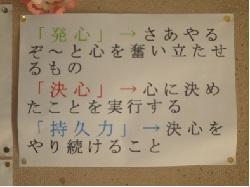 「発心」→さあやる
ぞ～と心を奮い立たせ
るもの
「決心」→心に決め
たことを実行する
「持久力」→決心を
やり続けること